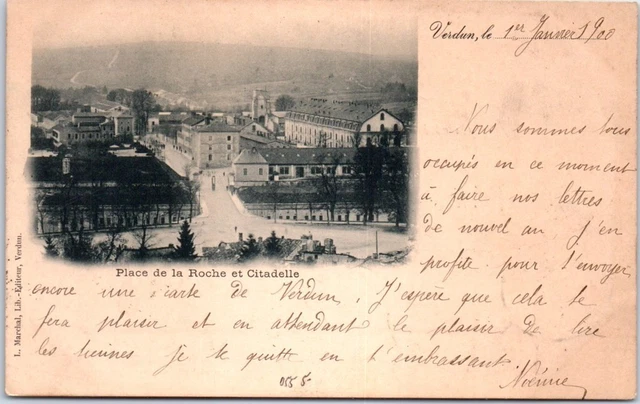 Verdun, le 1er Janvier 1900
Nous sommes tous
occupés en ce moment
à faire nos lettres
de nouvel an J'en
profite pour t'envoyer
Place de la Roche et Citadelle
encore une carte de Verdun. J'espère que cela te
fera plaisir et en attendant le plaisir de lire
les tiennes je te quitte en t'embrassant.
Noémie
L. Marchal, Lib.-Éditeur, Verdun.